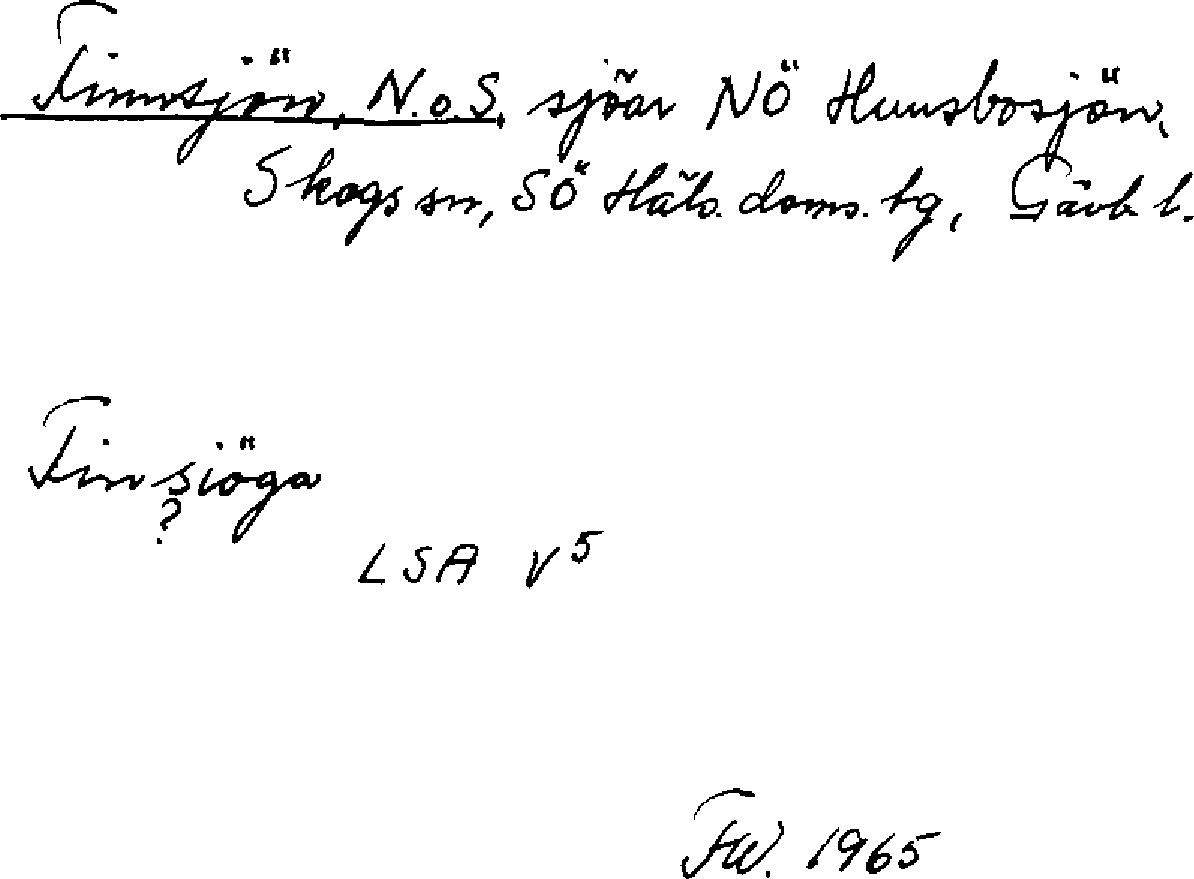 Finnsjön, N.o.S. sjöar NÖ Hunsbosjön,
Skogs sn, SÖ Häls. doms. tg, Gävb. l.
Finsiöga
?
LSA V 5
FW. 1965